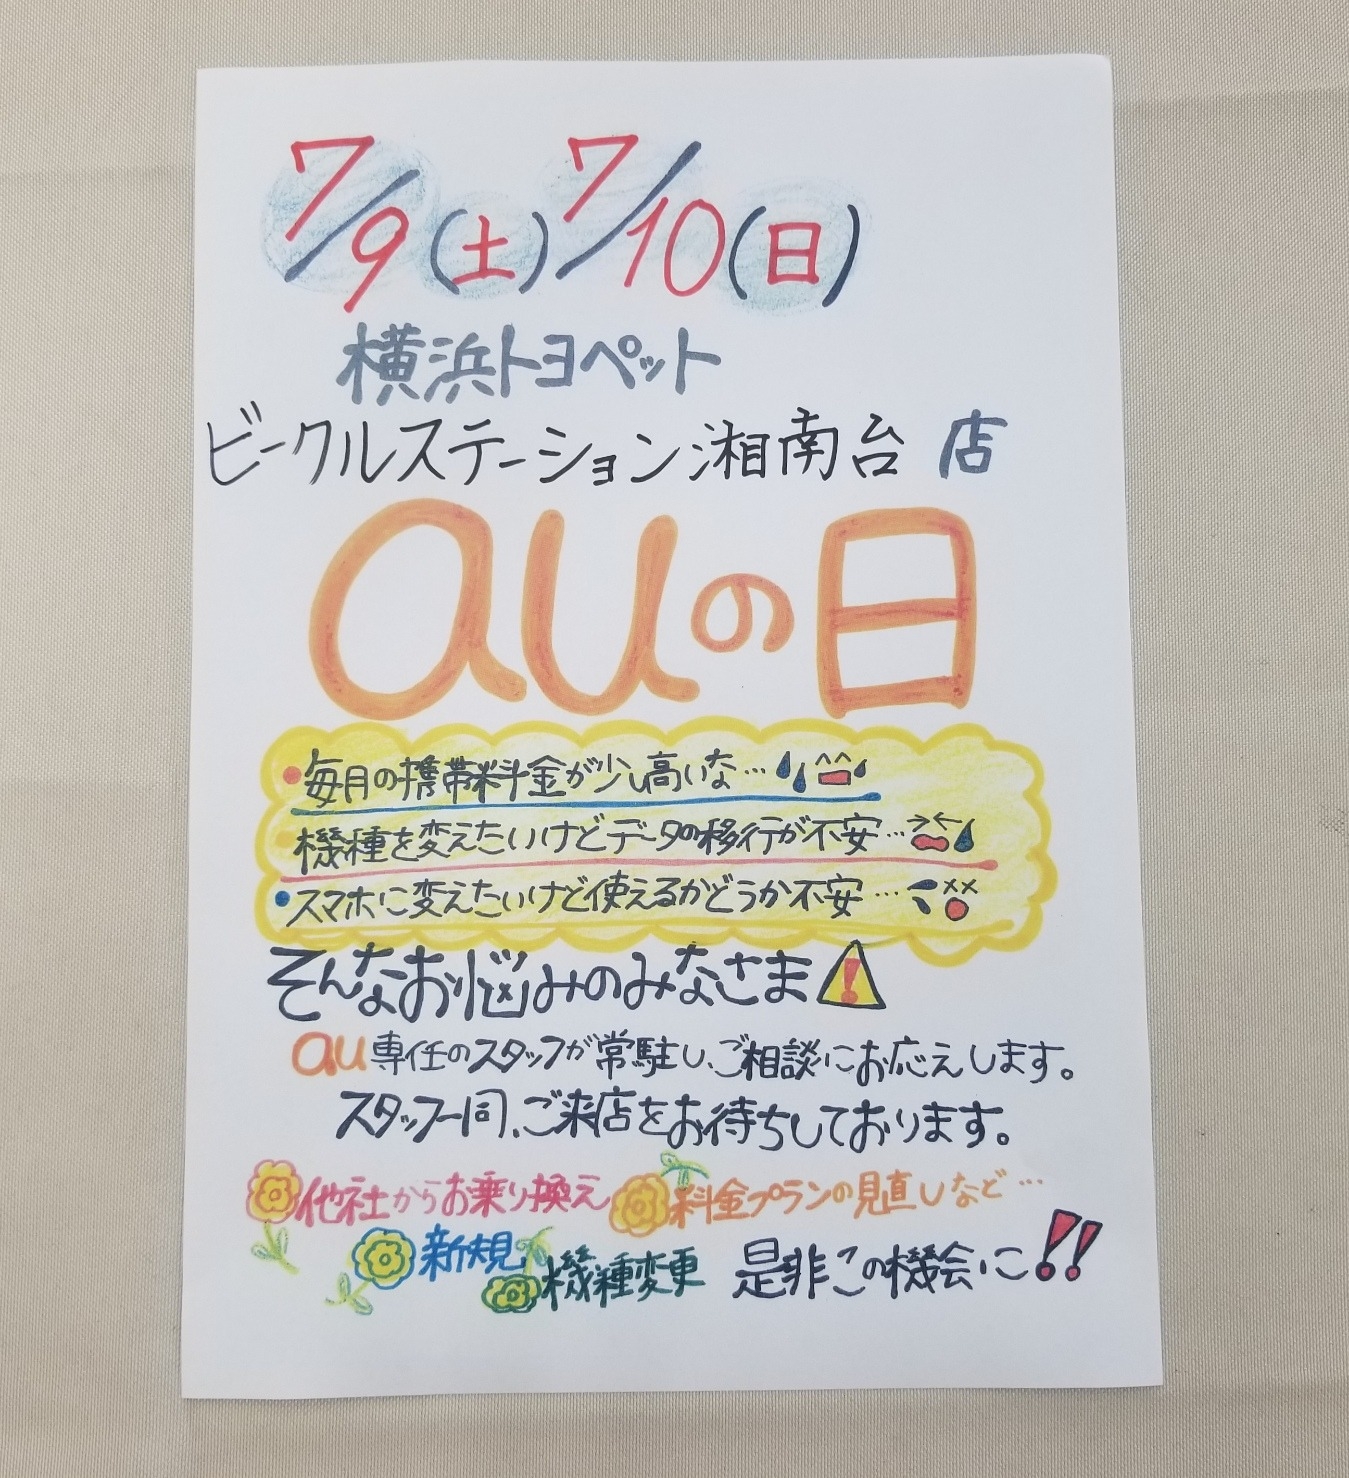 7/9(土)7/10(日)
横浜トヨペット
ビークルステーション湘南台 店
auの日
•毎月の携帯料金が少し高いな…
•機種を変えたいけどデータの移行が不安…
•スマホに変えたいけど使えるかどうか不安…
そんなお悩みのみなさま!
au専任のスタッフが常駐し、ご相談にお応えします。
スタッフ一同、ご来店をお待ちしております。
他社からお乗り換え 料金プランの見直しなど…
新規 機種変更 是非この機会に!!